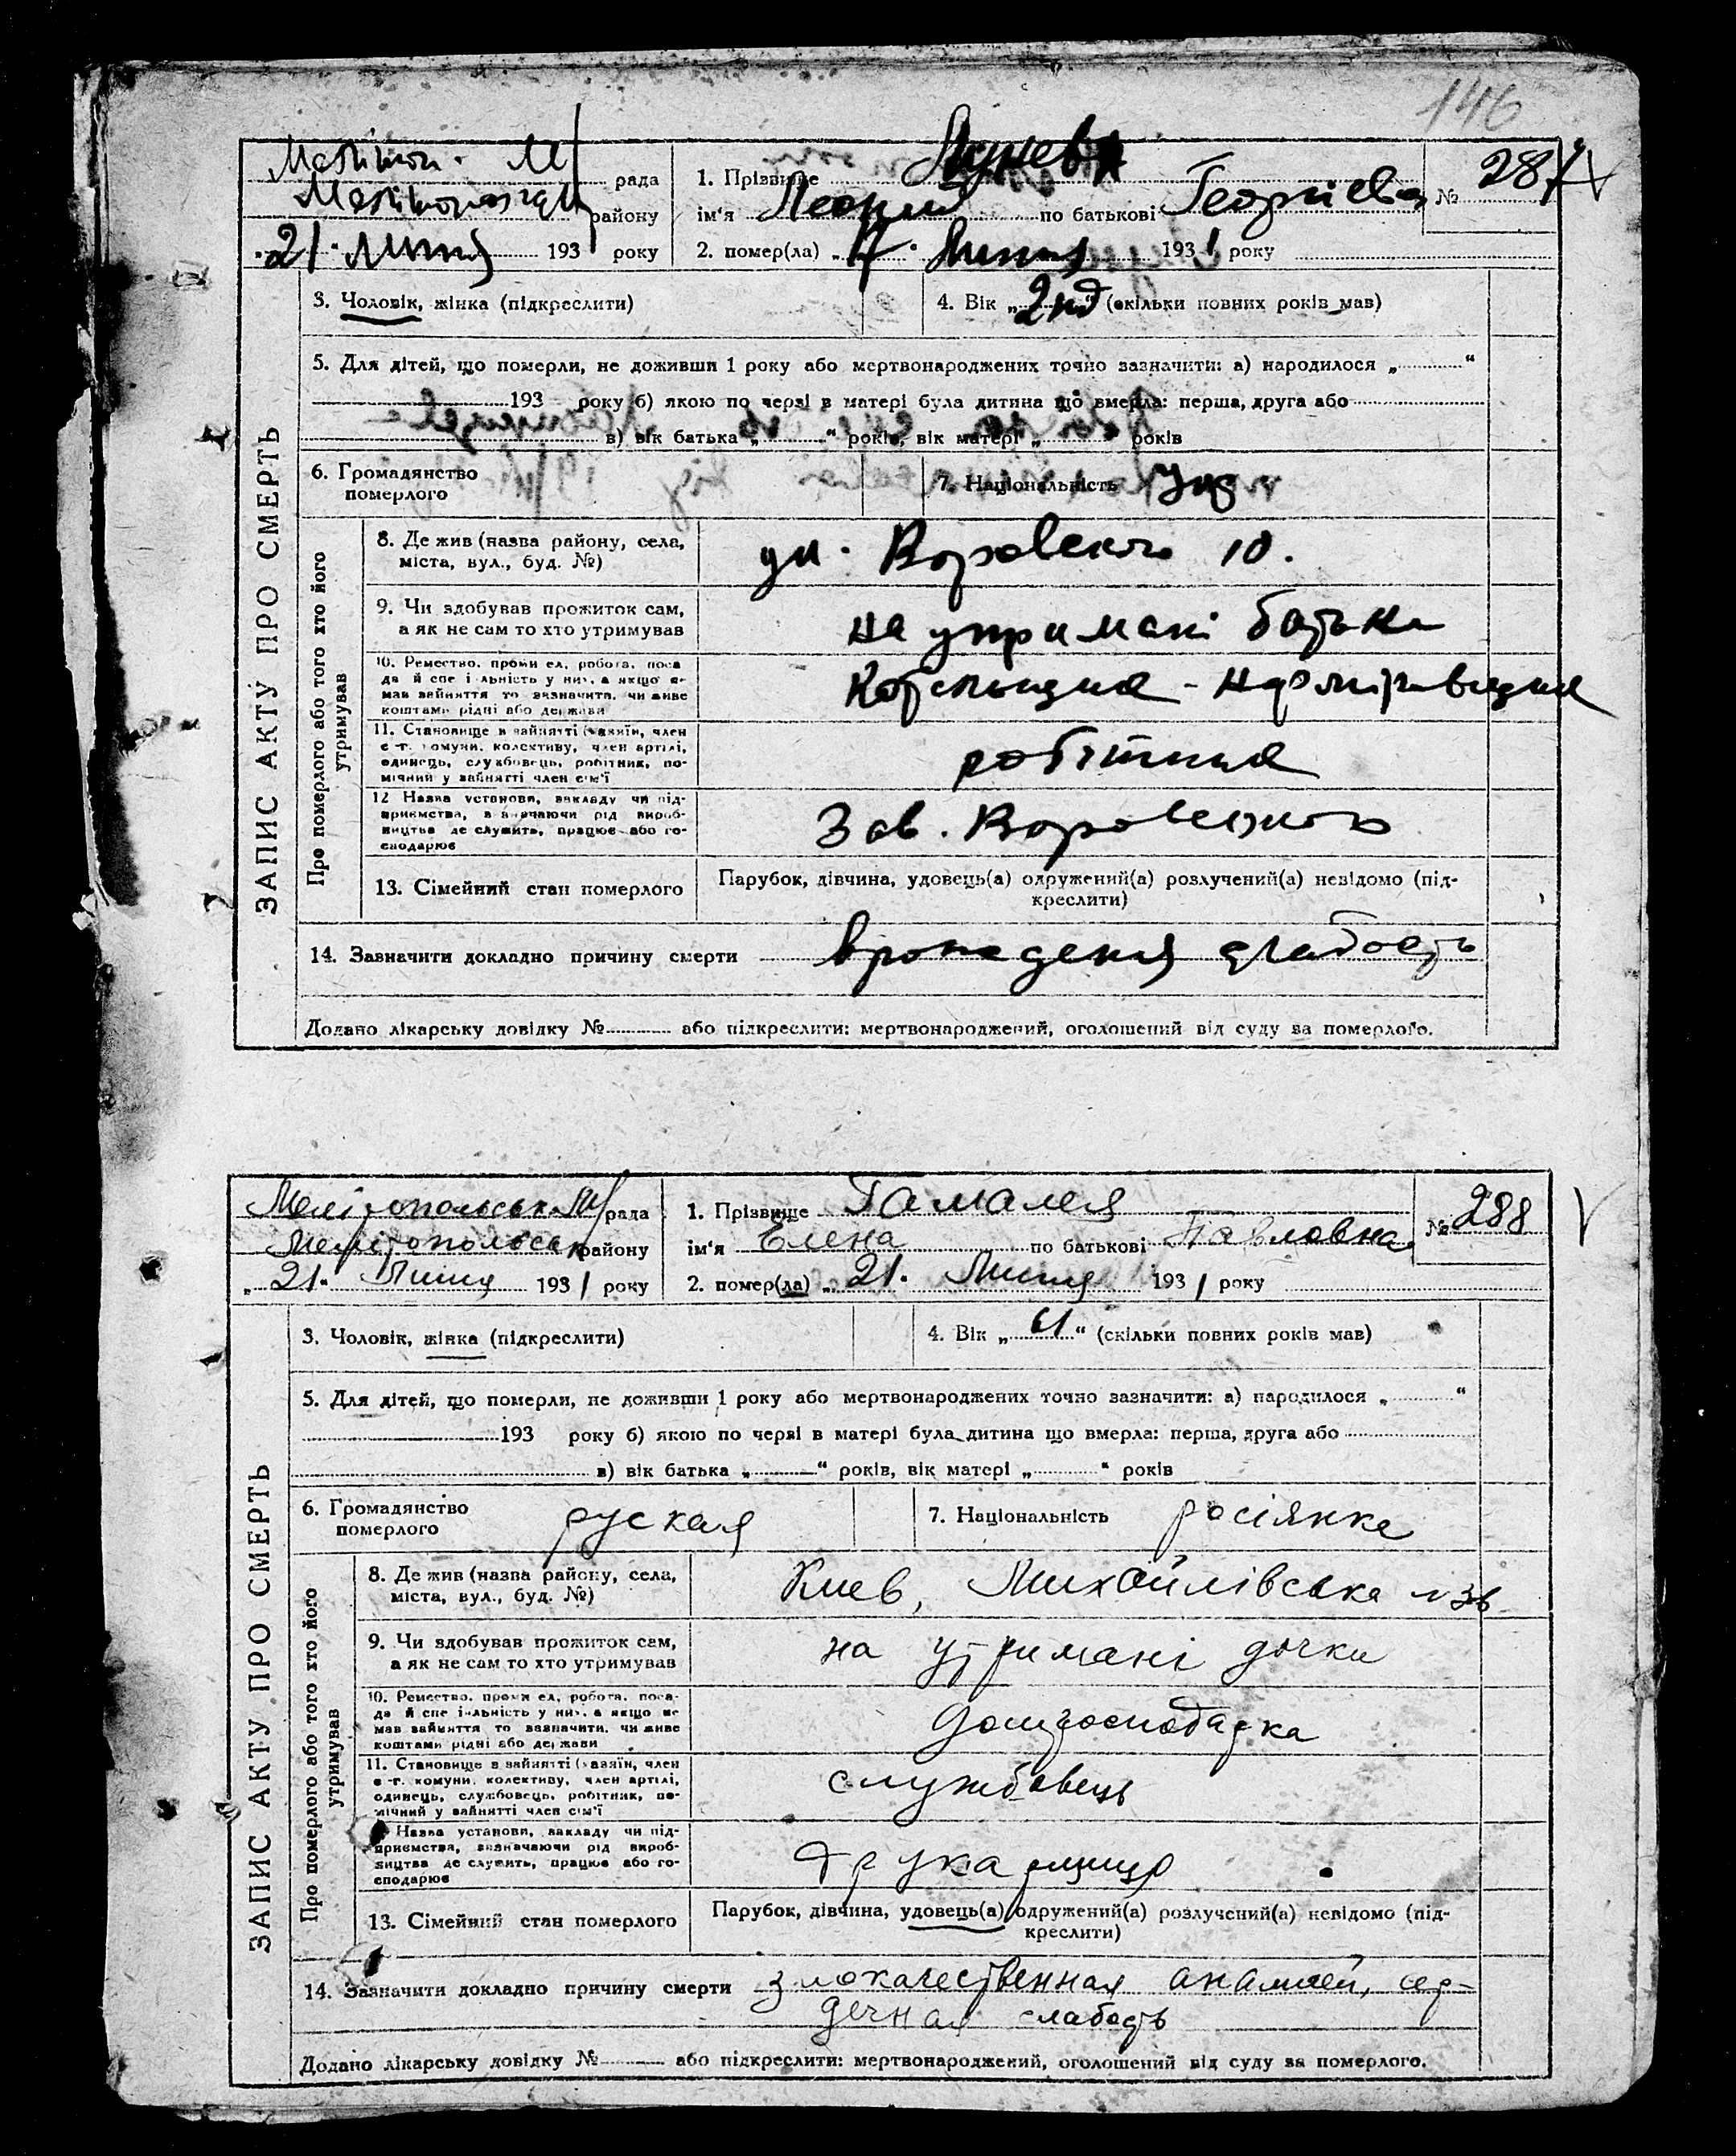 146
ЗАПИС АКТУ ПРО СМЕРТЬ
рада
району
21. липня 193 року
1. Прізвище
№ 287
ім'я по батькові
2. помер(ла) „ 17. липня 1931 року
3. Чоловік, жінка (підкреслити)
4. Вік „ 2 “ (скільки повних років мав)
5. Для дітей, що померли, не доживши 1 року або мертвонароджених точно зазначити: а) народилося „ “
193 року б) якою по черзі в матері була дитина що вмерла: перша, друга або
в) вік батька „ “ років, вік матері „ “ років
6. Громадянство
померлого
7. Національність Укр
Про померлого або того хто його
утримував
8. Де жив (назва району, села,
міста, вул., буд. №)
ул. Воровского 10.
9. Чи здобував прожиток сам,
а як не сам то хто утримував
на утримані батька
10. Ремество, промисел, робота, поса
да й спеціяльність у них, а якщо не
мав зайняття то зазначити, чи живе
коштами рідні або держави
11. Становище в зайнятті (хазяїн, член
с-г. комуни, колективу, член артілі,
одинець, службовець, робітник, по-
мічний у зайнятті член сім'ї
робітник
12 Назва установи, закладу чи під-
приємства, зазначаючи рід вироб-
ництва де служить, працює або го-
сподарює
Зав. Воровского
13. Сімейний стан померлого
Парубок, дівчина, удовець(а) одружений(а) розлучений(а) невідомо (під-
креслити)
14. Зазначити докладно причину смерти врожденая слабость
Додано лікарську довідку № або підкреслити: мертвонароджений, оголошений від суду за померлого.
ЗАПИС АКТУ ПРО СМЕРТЬ
Мелітопольськ М/рада
Мелітопольськ району
„ 21. Липня 1931 року
1. Прізвище Гамалея
№ 288
ім'я Елена по батькові Павловна
2. помер(ла) „ 21. Липня 1931 року
3. Чоловік, жінка (підкреслити)
4. Вік „ 61 “ (скільки повних років мав)
5. Для дітей, що померли, не доживши 1 року або мертвонароджених точно зазначити: а) народилося „ “
193 року б) якою по черзі в матері була дитина що вмерла: перша, друга або
в) вік батька „ “ років, вік матері „ “ років
6. Громадянство
померлого
руская
7. Національність росіянка
Про померлого або того хто його
утримував
8. Де жив (назва району, села,
міста, вул., буд. №)
Киев, Михайлівська № 36
9. Чи здобував прожиток сам,
а як не сам то хто утримував
на утримані дочки
10. Ремество, промисел, робота, поса-
да й спеціяльність у них, а якщо не
мав зайняття то зазначити, чи живе
коштами рідні або держави
домгосподарка
11. Становище в зайнятті (хазяїн, член
с-г. комуни, колективу, член артілі,
одинець, службовець, робітник, по-
мічний у зайнятті член сім'ї
службовець
Назва установи, закладу чи під-
приємства, зазначаючи рід вироб-
ництва де служить, працює або го-
сподарює
13. Сімейний стан померлого
Парубок, дівчина, удовець(а) одружений(а) розлучений(а) невідомо (під-
креслити)
14. Зазначити докладно причину смерти злокачественная анамией, сер-
дечная слабость
Додано лікарську довідку № або підкреслити: мертвонароджений, оголошений від суду за померлого.